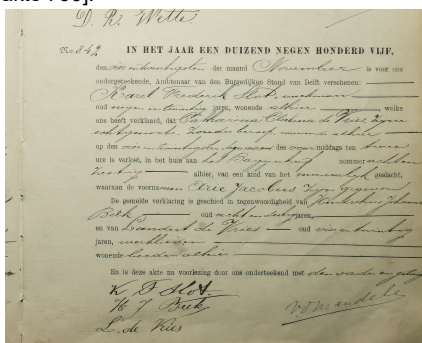 D. R. Wette
No. 842 IN HET JAAR EEN DUIZEND NEGEN HONDERD VIJF,
den vier en twintigsten der maand November is voor ons
ondergeteekende, Ambtenaar van den Burgerlijken Stand van Delft verschenen:
Karel Frederik Slot, werkman
oud negen en twintig jaren, wonende alhier, welke
ons heeft verklaard, dat Catharina Clasina de Vries zijne
echtgenoote, zonder beroep, wonende alhier
op den vier en twintigsten dezer maand des voor middags ten twee
ure is verlost, in het huis aan het nommer achten
alhier, van een kind van het mannelijk geslacht,
waaraan de voornamen Jacobus zijn gegeven
De gemelde verklaring is geschied in tegenwoordigheid van Johannes
Beek oud acht en dertig jaren,
en van Leendert de Vries oud zes en twintig
jaren, werklieden
wonende beiden alhier
En is deze akte na voorlezing door ons onderteekend met den vader en getuigen
K F Slot.
H J Beek
L. de Vries
v.d. Mandele